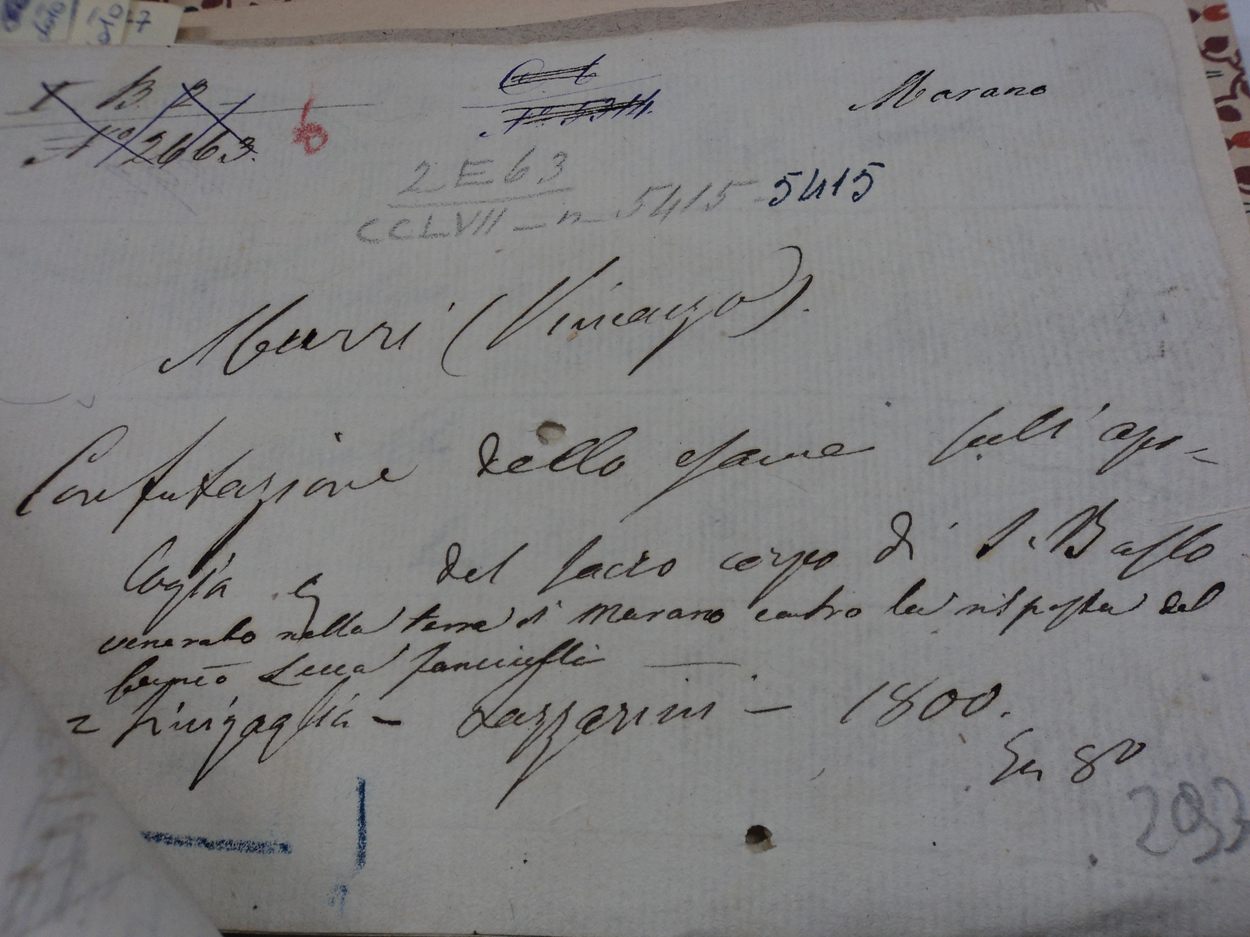 I B 2
N.º 2663.
6
C t
Nº 5314.
Marano
2 E 63
CCLVII – n – 5415 - 5415
Murri (Vincenzo).
Confutazione dello esame sull'apo-
logia del sacro corpo di S. Basso
venerato nella terra di Marano contro la risposta del
Luca Fanciulli
= Sinigaglia – Lazzarini – 1800.
In 8º
293